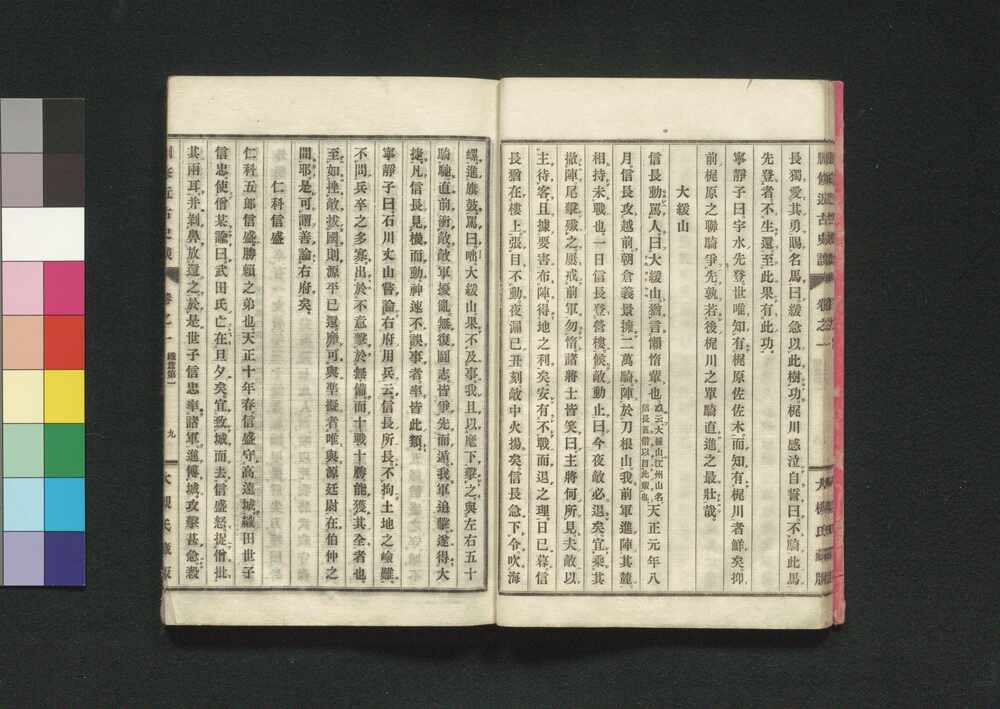 長獨愛其勇賜名馬曰緩急以此樹功梶川感泣自誓曰不騎此馬
先登者不生還至此果有此功
寧靜子曰宇水先登世唯知有梶原佐佐木而知有梶川者鮮矣抑
前梶原之聯騎爭先孰若後梶川之單騎直進之最壯哉
大緩山
信長動罵人曰大緩山猶言懶惰輩也
天正元年八
月信長攻越前朝倉義景擁二萬騎陣於刀根山我前軍進陣其麓
相持未戰也一日信長登營樓候敵動止曰今夜敵必退矣宜乘其
撤陣尾擊殲之屢戒前軍勿惰諸將士皆笑曰主將何所見夫敵以
主待客且據要害布陣得地之利矣安有不戰而退之理日已暮信
長猶在樓上張目不動夜漏已丑刻敵中火揚矣信長急下令吹海
螺進旗鼓罵曰咄大緩山果不及事我且以麾下擊之與左右五十
騎驅直前衝敵敵軍擾亂無復鬪志皆爭先而遁我軍追擊遂得大
捷凡信長見機而動神速不誤事者率皆此類
寧靜子曰石川丈山嘗論右府用兵云信長所長不拘土地之嶮難
不問兵卒之多寡出於不意擊於無備而十戰十勝能獲其全者也
至如挫敵拔國則源平已還靡可與準擬者唯與源廷尉在伯仲之
間耶是可謂善論右府矣
仁科信盛
仁科五郎信盛勝賴之弟也天正十年春信盛守高遠城織田世子
信忠使僧某諭曰武田氏亡在旦夕矣宜致城而去信盛怒捉僧批
其兩耳并剝鼻放還之於是世子信忠率諸軍進傅城攻擊甚急殺
卷之一
織豐第一
九